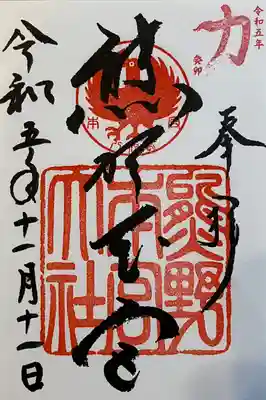 令和五年
力
癸卯
奉拝
熊野本宮
熊野
本宮
大社
令和五年十一月十一日